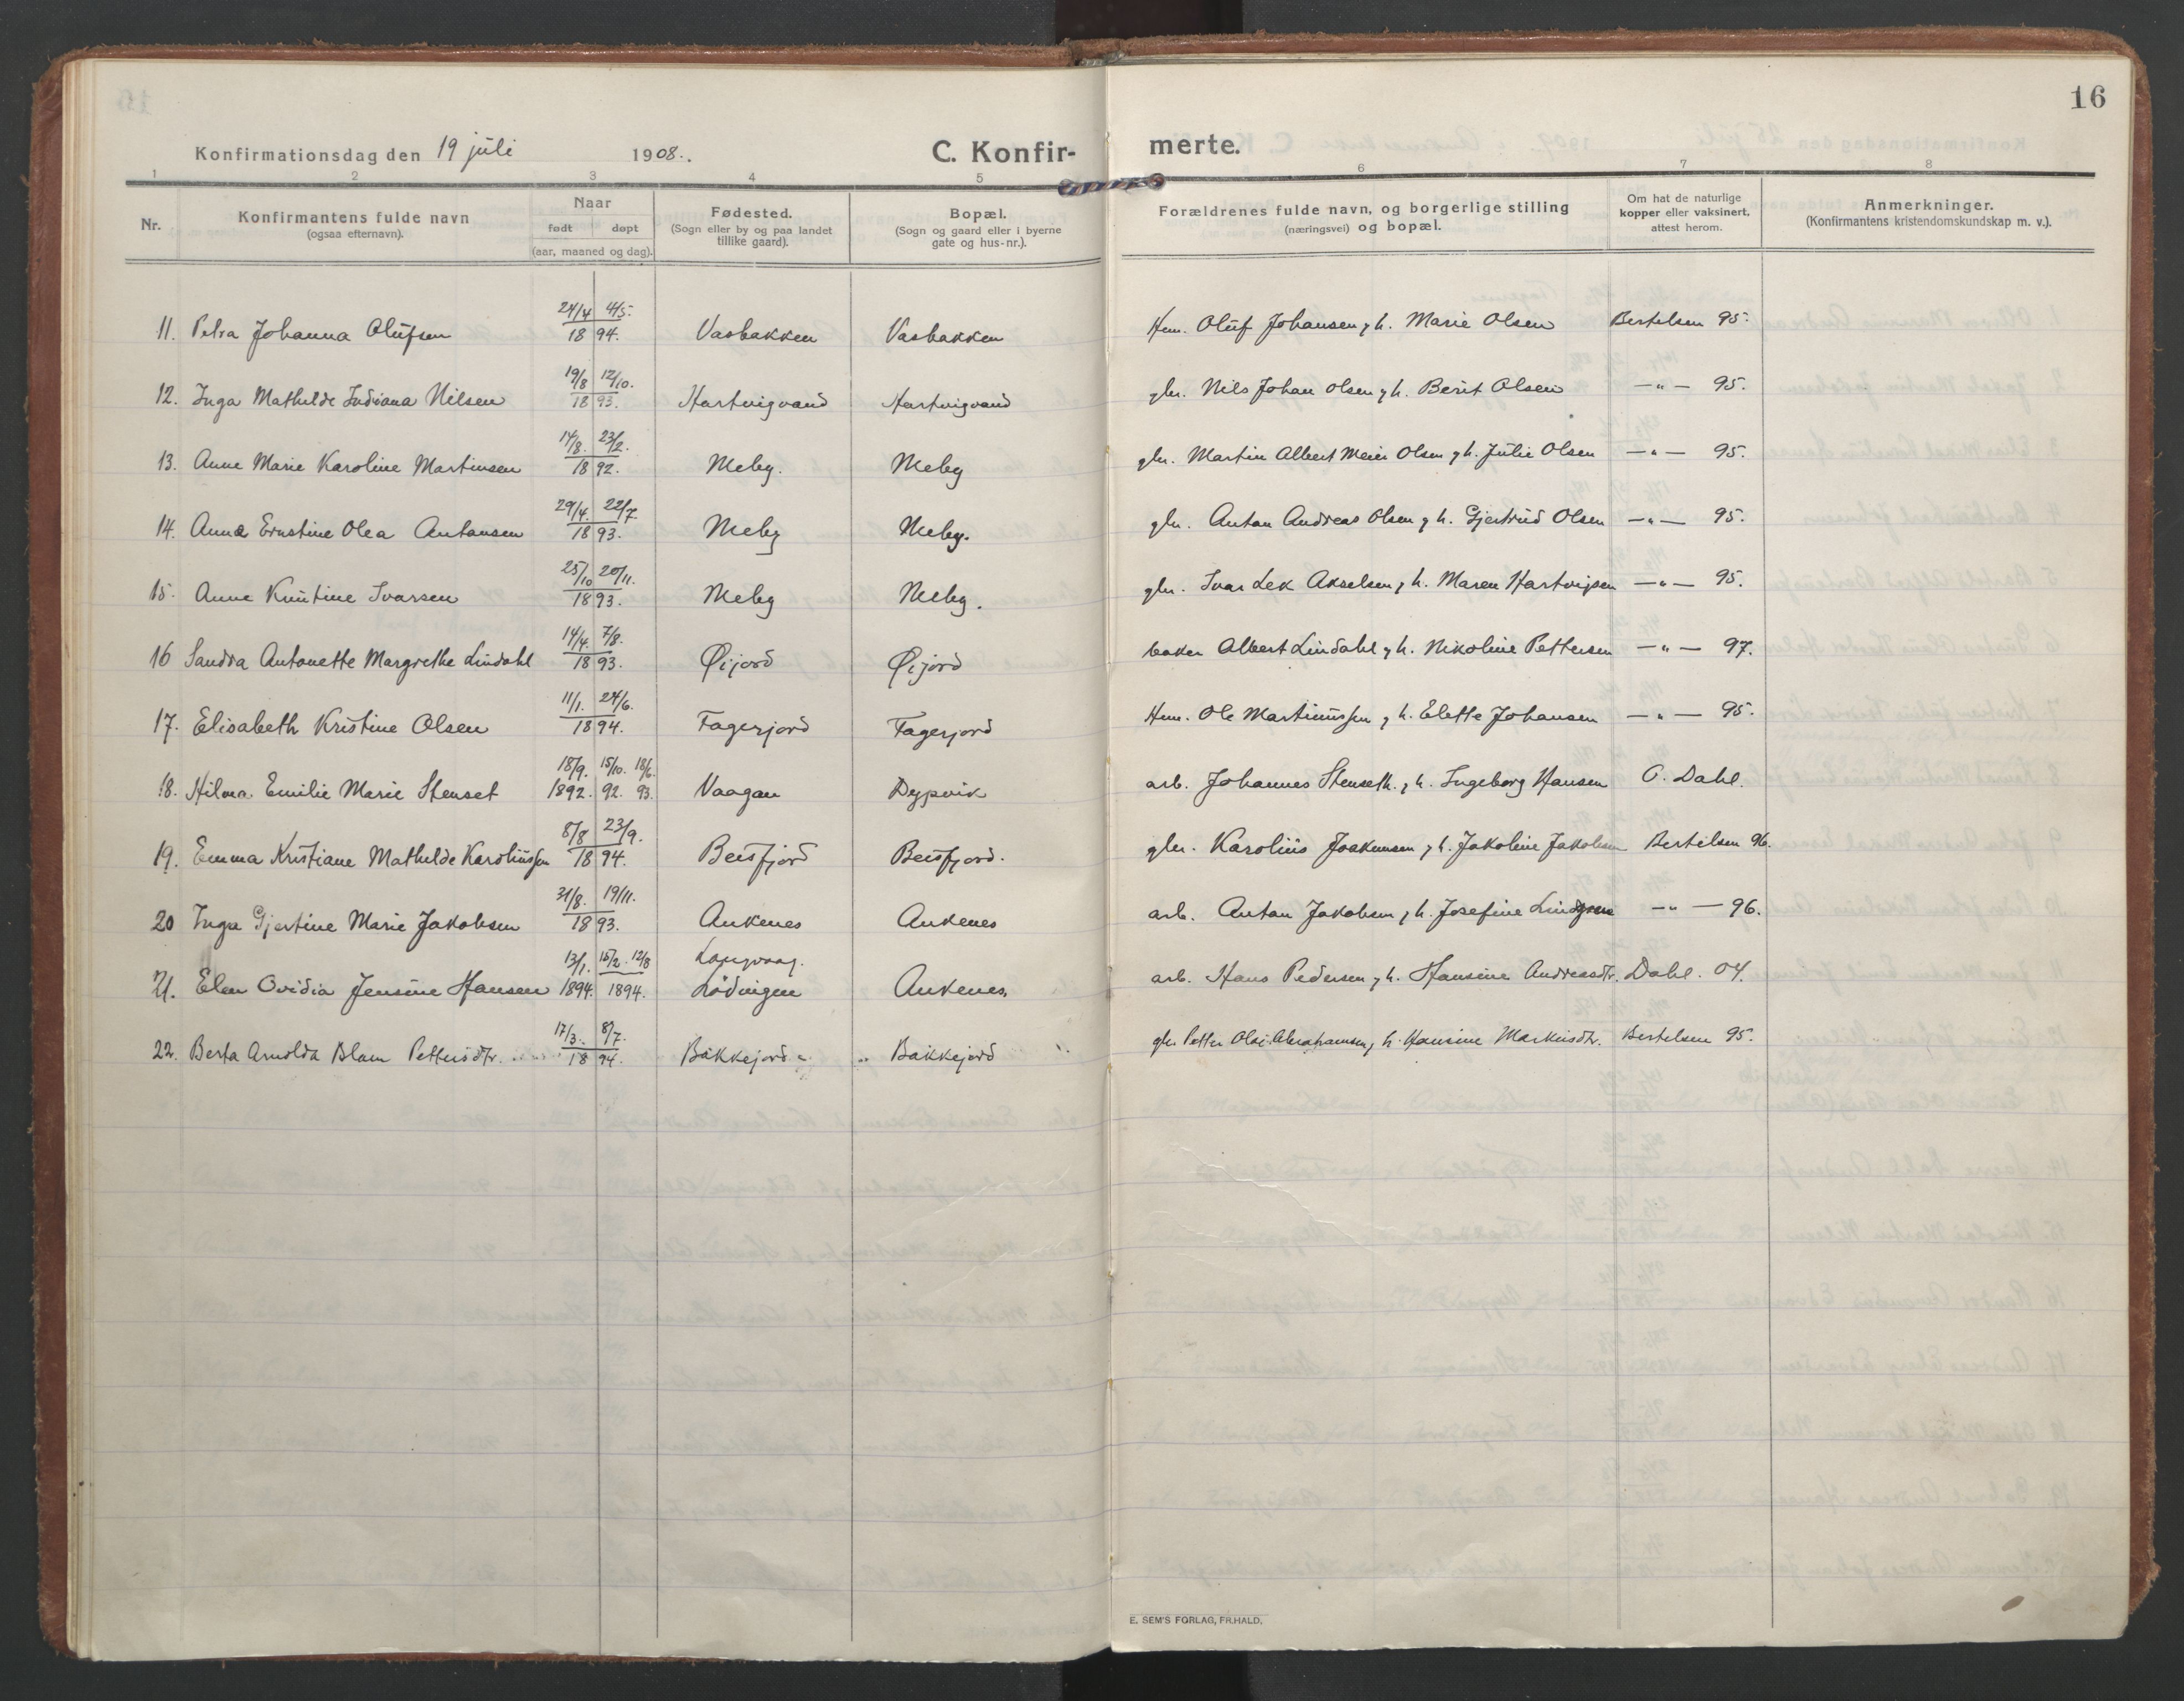 16
Konfirmationsdag den 19 juli 1908. C. Konfirmerte.
1 2 3 4 5 6 7 8
Nr. Konfirmantens fulde navn (ogsaa efternavn). Naar født døpt (aar, maaned og dag). Fødested. (Sogn eller by og paa landet tillike gaard). Bopæl. (Sogn og gaard eller i byerne gate og hus-nr.). Forældrenes fulde navn, og borgerlige stilling (næringsvei) og bopæl. Om hat de naturlige kopper eller vaksinert, attest herom. Anmerkninger. (Konfirmantens kristendomskundskap m. v.).
11. Petra Johanna Olufsen 24/4 4/5. 1894. Vasbakken Vasbakken Hem. Oluf Johansen, h. Marie Olsen Bertelsen 95.
12. Inga Mathilde Indiana Nilsen 19/8 12/10. 1893. Hartvigvand Hartvigvand gbr. Nils Johan Olsen, h. Berit Olsen —"— 95.
13. Anne Marie Karoline Martinsen 14/8. 23/2. 1892. Meby. Meby gbr. Martin Albert Meier Olsen, h. Julie Olsen —"— 95.
14. Anna Ernstine Olea Antonsen 29/4. 22/7. 1893. Meby Meby. gbr. Anton Andreas Olsen, h. Gjertrud Olsen —"— 95.
15. Anne Kristine Ivarsen 25/10 20/11. 1893. Meby Meby. gbr. Ivar Lek Akselsen, h. Maren Hartvigsen —"— 95.
16 Sandra Antonette Margrethe Lindahl 14/4. 7/8. 1893. Øijord Øijord baker Albert Lindahl, h. Nikoline Pettersen —"— 97.
17. Elisabeth Kristine Olsen 11/1. 24/6. 1894. Fagerjord Fagerjord Hem. Ole Martinussen, h. Elette Johansen —"— 95.
18. Hilma Emilie Marie Stenset 18/9. 15/10. 18/6. 1892. 92. 93. Vaagan Dypvik arb. Johannes Stenseth, h. Ingeborg Hansen O. Dahl.
19. Emma Kristiane Mathilde Karoliussen 8/8 23/9. 1894. Beisfjord Beisfjord. gbr. Karolius Joakimsen, h. Jakoline Jakobsen Bertelsen 96.
20 Inga Gjertine Marie Jakobsen 31/8. 19/11. 1893. Ankenes Ankenes arb. Anton Jakobsen, h. Josefine Lindgren —"— 96.
21. Elen Ovidia Jensine Hansen 13/1. 15/2. 12/8 1894. 1894. Langvaag. Lödingen Ankenes. arb. Hans Pedersen, h. Hansine Andreasdtr. Dahl. 04.
22. Berta Arnolda Blam Pettersdtr. 17/3. 8/7. 1894. Bakkejord Bakkejord gbr. Petter Olai Abrahamsen, h. Hansine Markusdtr. Bertelsen 95.
E. SEM'S FORLAG, FR.HALD.